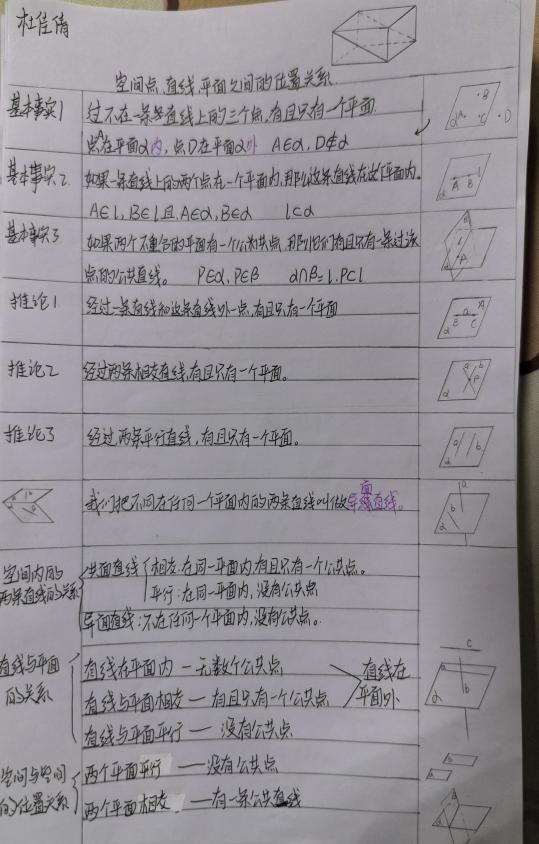 杜佳倩
空间点、直线、平面之间的位置关系
基本事实1
过不在一条直线上的三个点,有且只有一个平面
点A在平面α内,点D在平面α外 A∈α, D∉α
基本事实2
如果一条直线上的两个点在一个平面内,那么这条直线在这个平面内。
A∈l, B∈l 且 A∈α, B∈α l⊂α
基本事实3
如果两个不重合的平面有一个公共点,那么它们有且只有一条过该
点的公共直线。 P∈α, P∈β α∩β=l, P∈l
推论1
经过一条直线和这条直线外一点,有且只有一个平面
推论2
经过两条相交直线,有且只有一个平面。
推论3
经过两条平行直线,有且只有一个平面。
我们把不同在任何一个平面内的两条直线叫做异面直线。
空间内的
两条直线的关系
共面直线 相交:在同一平面内,有且只有一个公共点。
平行:在同一平面内,没有公共点
异面直线:不在任何一个平面内,没有公共点。
直线与平面
的关系
直线在平面内—无数个公共点
直线与平面相交—有且只有一个公共点
直线与平面平行—没有公共点
直线在
平面外
空间与空间
的位置关系
两个平面平行—没有公共点
两个平面相交—有一条公共直线